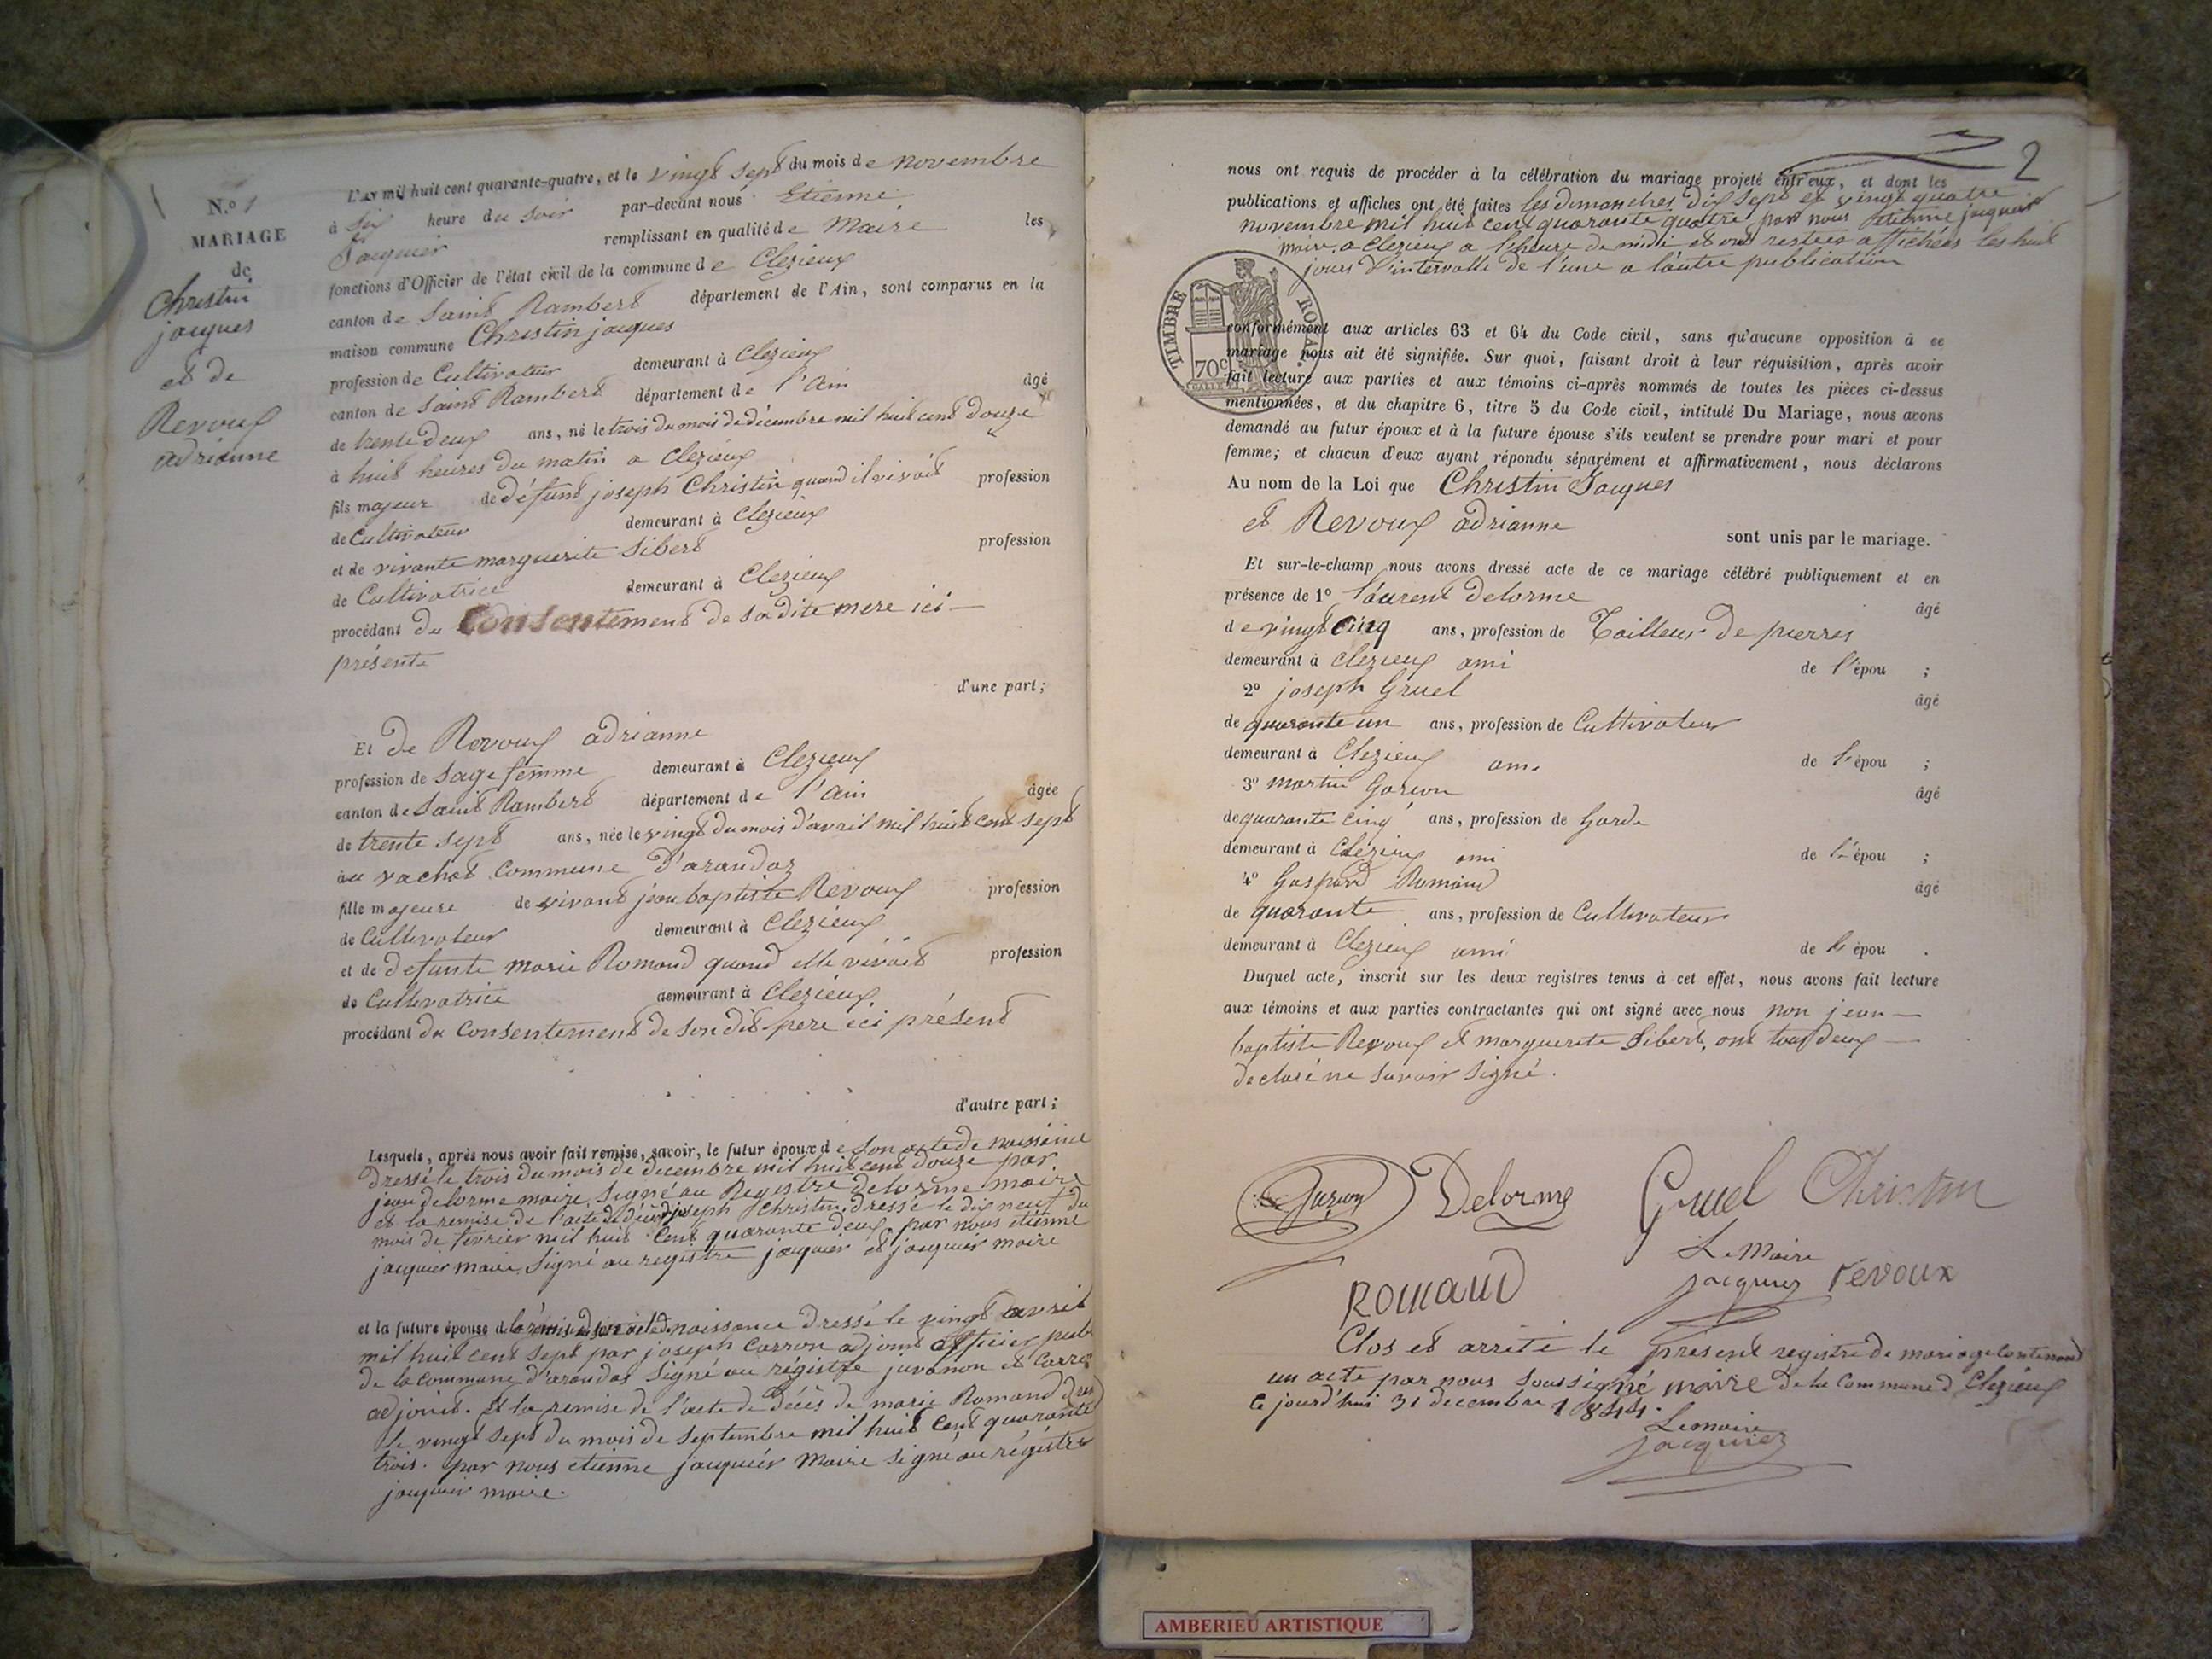 N.o 1
MARIAGE
de
Christin
jacques
et de
Revoux
adrianne
L'AN mil huit cent quarante-quatre, et le vingt sept du mois de novembre
à six heure du soir par-devant nous Etienne
Jacquier remplissant en qualité de Maire les
fonctions d'Officier de l'état civil de la commune de Clezieux
canton de Saint Rambert département de l'Ain, sont comparus en la
maison commune Christin jacques
profession de Cultivateur demeurant à Clezieux
canton de Saint Rambert département de l'ain âgé
de trente deux ans, né le trois du mois de décembre mil huit cent douze
à huit heures du matin a Clezieux
fils majeur de défunt joseph Christin quand il vivait profession
de Cultivateur demeurant à Clezieux
et de vivante marguerite Sibert profession
de Cultivatrice demeurant à Clezieux
procédant du Consentement de sadite mere ici
présente
d'une part;
Et de Revoux adrianne
profession de Sage femme demeurant à Clezieux
canton de Saint Rambert département de l'ain âgée
de trente sept ans, née le vingt du mois d'avril mil huit cent sept
au vachat commune d'arandaz
fille majeure de vivant jean baptiste Revoux profession
de Cultivateur demeurant à Clezieux
et de defunte marie Romand quand elle vivait profession
de Cultivatrice demeurant à Clezieux
procédant du Consentement de son dit pere ici présent
d'autre part;
Lesquels, après nous avoir fait remise, savoir, le futur époux de Son acte de naissance
dressé le trois du mois de decembre mil huit cent douze par
jean delorme maire, Signé au Registre delorme maire
et la remise de l'acte de décès joseph Christin dressé le dix neuf du
mois de fevrier mil huit Cent quarante deux par nous etienne
jacquier maire, Signé au registre jacquier et jacquier maire
et la future épouse de la remise de son acte de naissance dressé le vingt avril
mil huit cent sept par joseph Carron adjoint officier publ
de la commune d'arandas Signé au régistre juvanon et Carron
adjoint. Et la remise de l'acte de décès de marie Romand dressé
le vingt sept du mois de Septembre mil huit Cent quarante
trois. par nous etienne jacquier Maire signé au régistre
jacquier maire.
2
nous ont requis de procéder à la célébration du mariage projeté entr'eux, et dont les
publications et affiches ont été faites les dimanches dix sept et vingt quatre
novembre mil huit cent quarante quatre par nous etienne jacquier
maire, a clezieux a l'heure de midi et ont restées affichées les huit
jours d'intervalle de l'une a l'autre publication
TIMBRE ROYAL.
70c
conformément aux articles 63 et 64 du Code civil, sans qu'aucune opposition à ce
mariage nous ait été signifiée. Sur quoi, faisant droit à leur réquisition, après avoir
fait lecture aux parties et aux témoins ci-après nommés de toutes les pièces ci-dessus
mentionnées, et du chapitre 6, titre 5 du Code civil, intitulé Du Mariage, nous avons
demandé au futur époux et à la future épouse s'ils veulent se prendre pour mari et pour
femme; et chacun d'eux ayant répondu séparément et affirmativement, nous déclarons
Au nom de la Loi que Christin Jacques
et Revoux adrianne
sont unis par le mariage.
Et sur-le-champ nous avons dressé acte de ce mariage célébré publiquement et en
présence de 1o laurent delorme âgé
de vingt cinq ans, profession de Tailleur de pierres
demeurant à Clezieux ami de l'épou ;
2o joseph Gruel âgé
de quarante un ans, profession de Cultivateur
demeurant à Clezieux ami de l'épou ;
3o martin Garion âgé
de quarante cinq ans, profession de Garde
demeurant à Clézieux ami de l'épou ;
4o Gaspard Romand âgé
de quarante ans, profession de Cultivateur
demeurant à Clezieux ami de l'épou .
Duquel acte, inscrit sur les deux registres tenus à cet effet, nous avons fait lecture
aux témoins et aux parties contractantes qui ont signé avec nous non jean
baptiste Revoux et marguerite Sibert, ont tous deux
declaré ne savoir signé.
Garion Delorme Gruel Christin
Le Maire
Romand jacquier revoux
Clos et arreté le present registre de mariage contenant
un acte par nous soussigné maire de la commune d Clezieux
Ce jourd'hui 31 decembre 1844.
Le maire
jacquier
AMBERIEU ARTISTIQUE